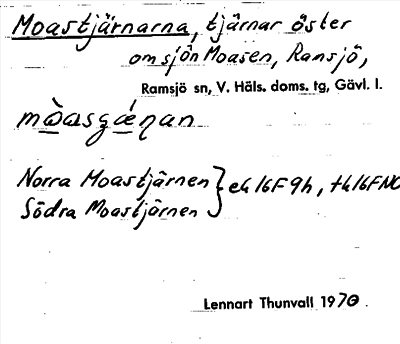 Moastjärnarna, tjärnar öster
om sjön Moasen, Ramsjö,
Ramsjö sn, V. Häls. doms. tg, Gävl. l.
Norra Moastjärnen } ek 16F9h, tk 16FNO
Södra Moastjärnen
Lennart Thunvall 1970.